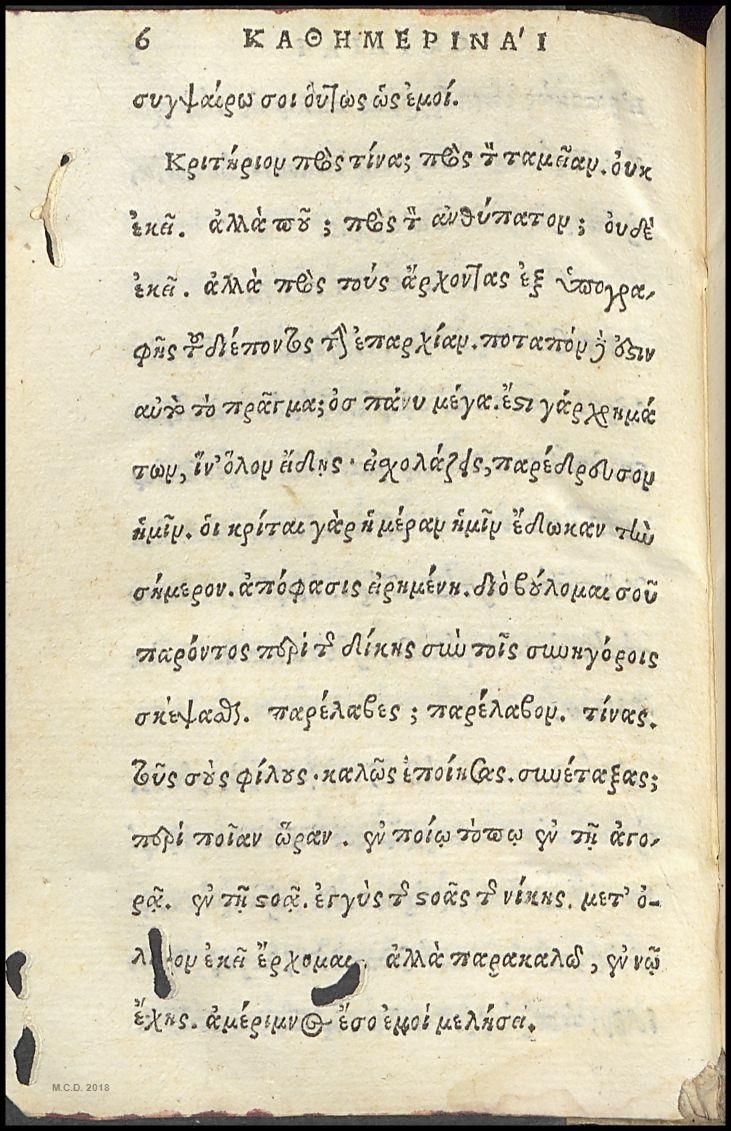 6 ΚΑΘΗΜΕΡΙΝΑ'Ι
συγχαίρω σοι οὕτως ὡς ἐμοί.
Κριτήριον πρὸς τίνα; πρὸς τὸν ταμεῖαν. οὐκ
ἐκεῖ. ἀλλὰ ποῦ; πρὸς τὸν ἀνθύπατον; οὐδὲ
ἐκεῖ. ἀλλὰ πρὸς τοὺς ἄρχοντας ἐξ ὑπογρα-
φῆς τοῦ διέποντος τὴν ἐπαρχίαν. ποταπὸν δὲ ὅστιν
αὐτὸ τὸ πρᾶγμα; οὐ πάνυ μέγα. ἔστι γάρ χρημά
των, ἵν' ὅλον εἴδῃς. εἰ χολάζεις, παρέδρευσον
ἡμῖν. ὁι κρίται γὰρ ἡμέραν ἡμῖν ἔδωκαν τὴν
σήμερον. ἀπόφασις εἰρημένη. διὸ βούλομαι σοῦ
παρόντος περὶ τῆς δίκης σὺν τοῖς συνηγόροις
σκέψαθαι. παρέλαβες; παρέλαβον. τίνας.
τοὺς σοὺς φίλους. καλῶς ἐποίησας. συνέταξας;
περὶ ποῖαν ὥραν. ἐν ποίῳ τόπῳ ἐν τῇ ἀγο-
ρᾷ. ἐν τῇ στοᾷ. ἐγγὺς τῆς στοᾶς τῆς νίκης. μετ' ὀ-
λίγον ἐκεῖ ἔρχομαι. ἀλλὰ παρακαλῶ, ἐν νῷ
ἔχῃς. ἀμέριμνος ἔσο ἐμοὶ μελήσει.
M.C.D. 2018